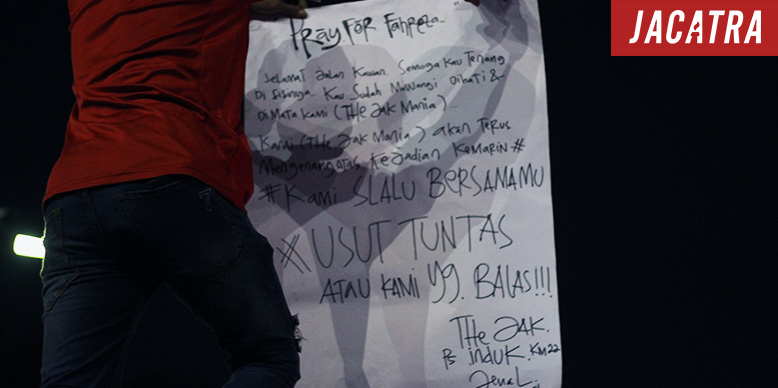 JACATRA
Pray For Fahreza
Selamat Jalan Kawan. Semoga Kau Tenang
Di Sisinya. Kau Sudah Mewangi Dihati &
Di Mata Kami (THe Jak Mania)
Kami (THe Jak Mania) akan Terus
Mengenang atas Kejadian Kemarin #
#Kami SLALU BERSAMAMU
#USUT TUNTAS
ATAU KAMI yg. BALAS!!!
THe JAK.
Ps. induk. KM22